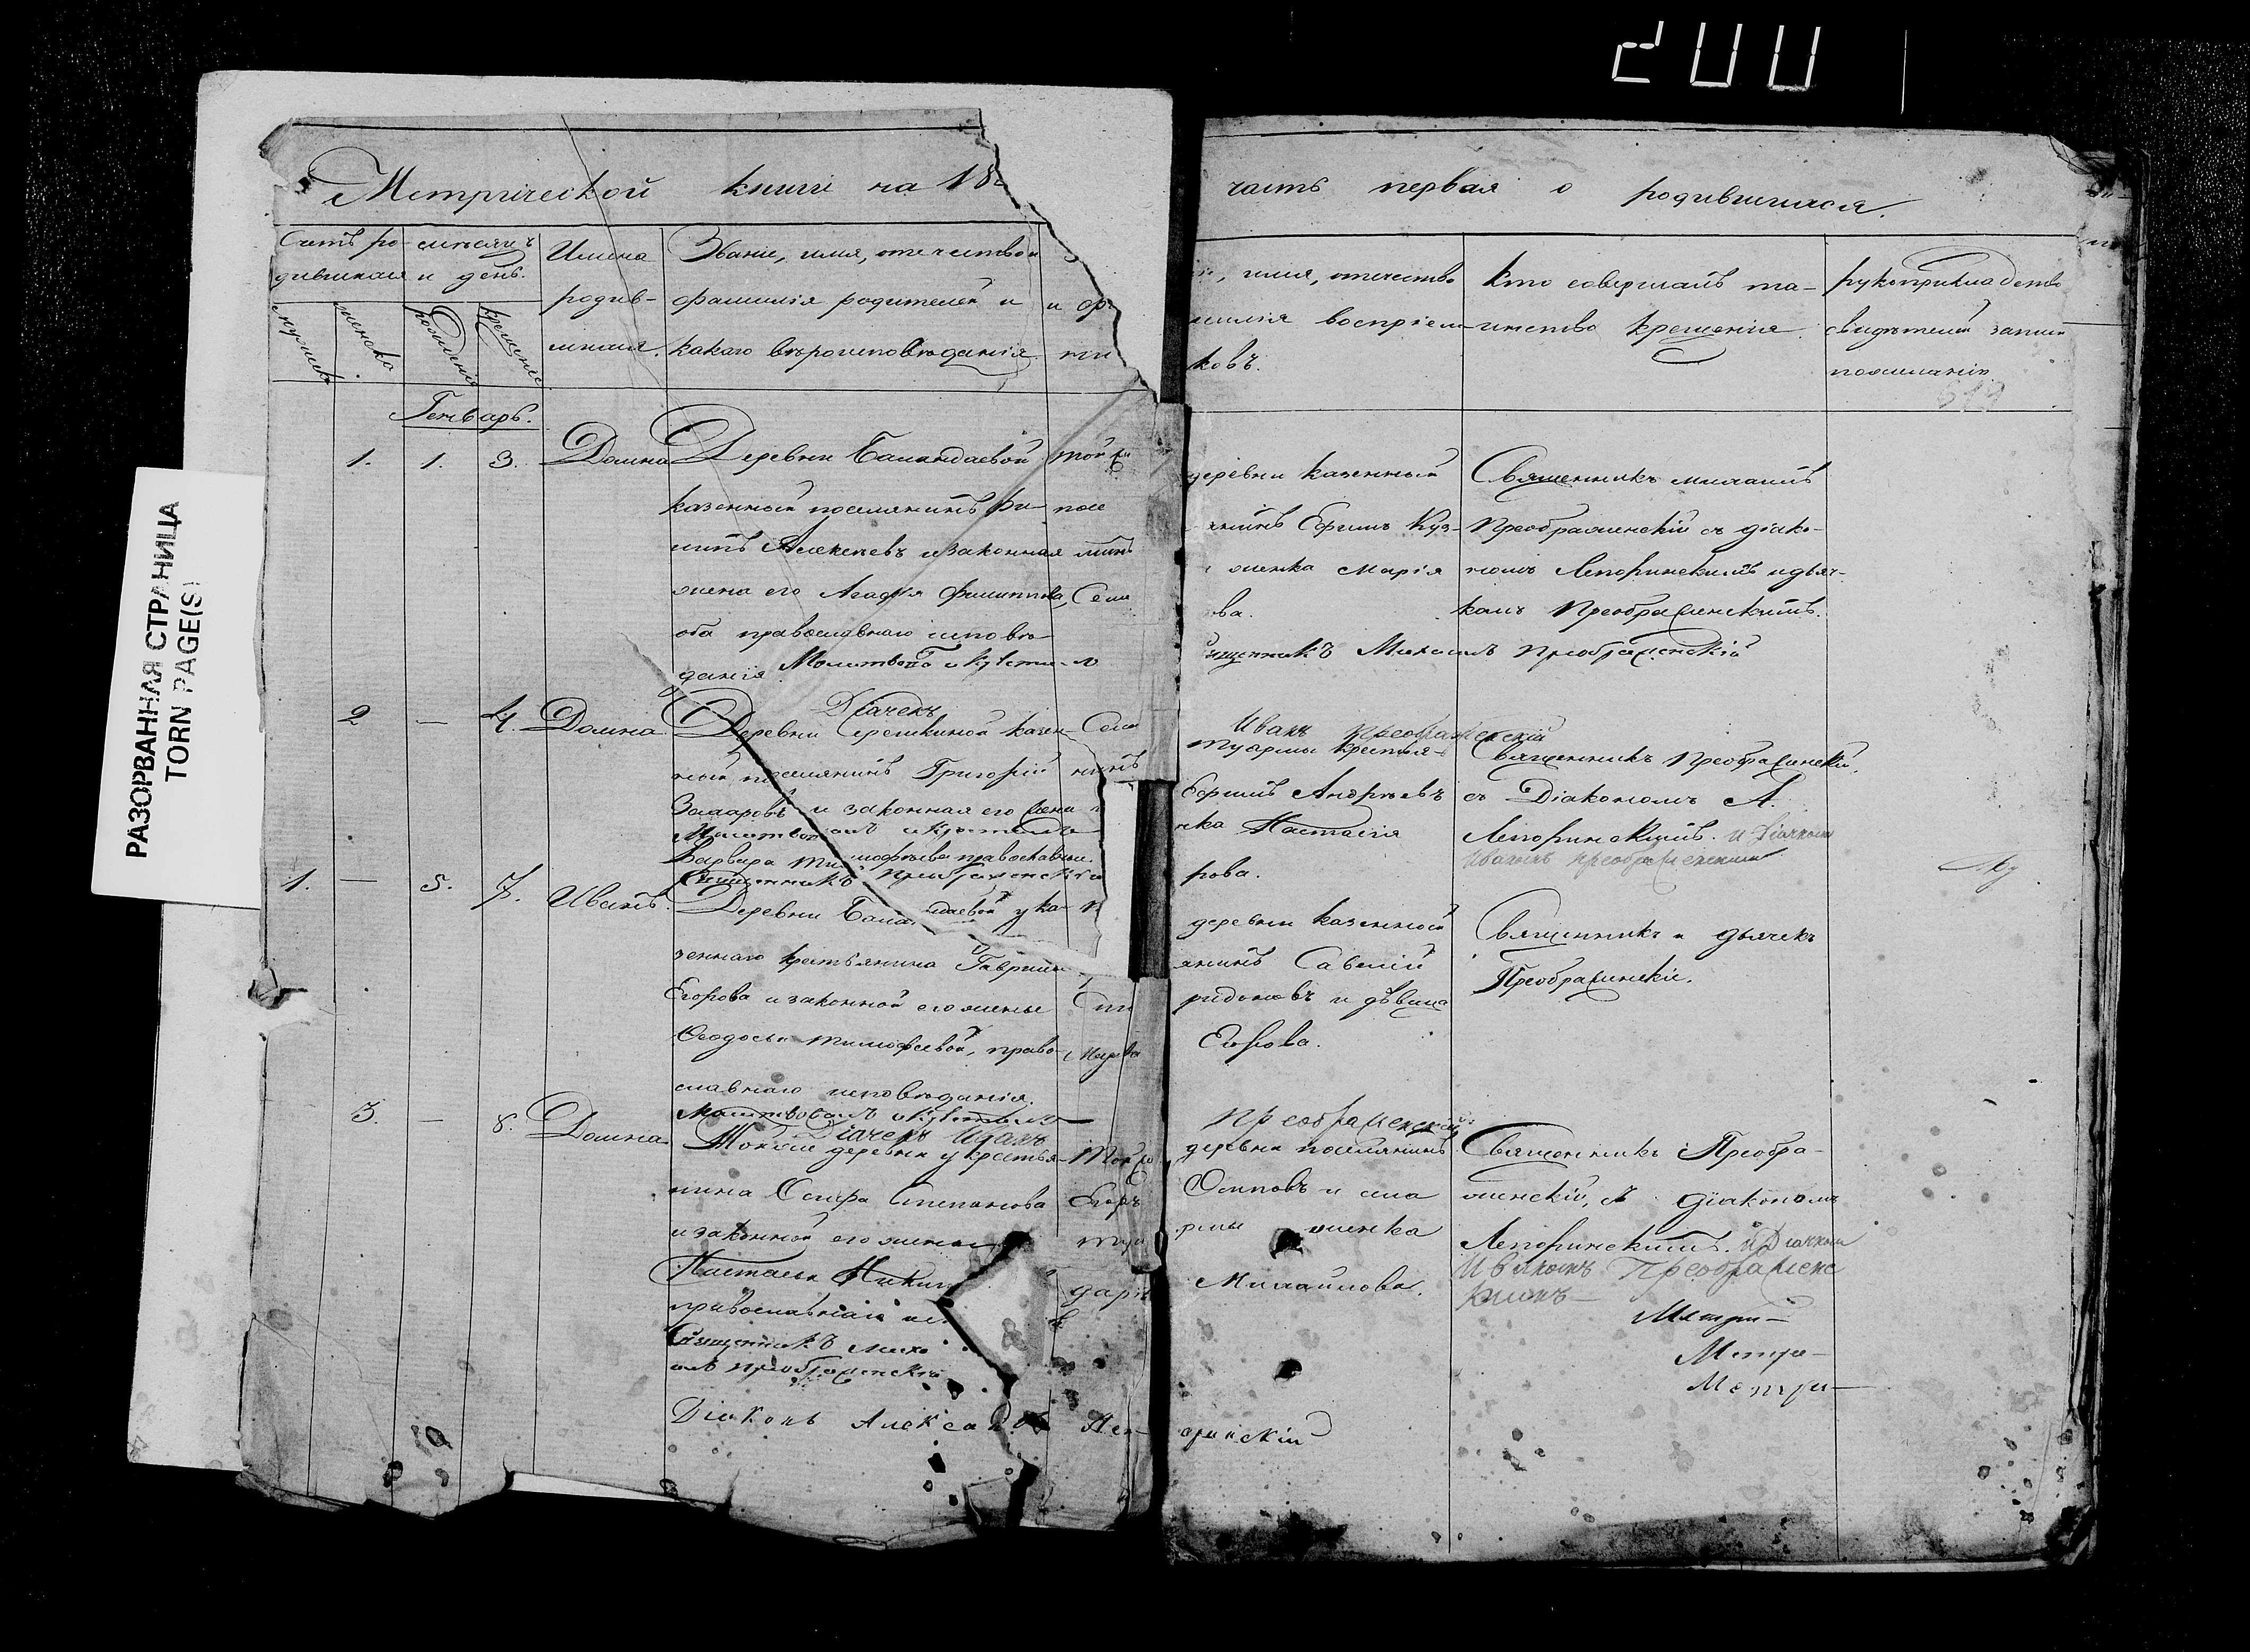 200
РАЗОРВАННАЯ СТРАНИЦА
TORN PAGE(S)
Метрической книги на 18
часть первая о родившихся.
Счетъ ро-
дившихся
мужеска
женска
месяцъ
и день.
рождения
крещения
Имена
родив-
шихся.
Званіе, имя, отечество и
фамилія родителей и
какого вѣроисповѣданія
и фа
, имя, отечество
милія воспріем-
ковъ.
кто совершалъ та-
инство крещенія
рукоприкладство
свидѣтелей записи
по желанію
Генварь.
1. 1. 3. Домна
Деревни Баландаевой
казенный поселянинъ Фи-
липъ Алексеевъ и законная
жена его Агафья Филиппова,
оба православнаго исповѣ-
данія
Молитвовалъ и крестилъ
той
посе
Семе
деревни казенный
янинъ Ефимъ Куз-
женка Марія
ова.
Священникъ Михаилъ Преображенскій
Священникъ Михаилъ
Преображенскій съ діако-
номъ Лепоринскимъ и дьяч-
комъ Преображенскимъ.
Дiачекъ Иванъ Преображенскій
2 — 4. Домна
Деревни Серешкиной казен-
ный поселянинъ Григорій
Захаровъ и законная его жена
Молитвовалъ и крестилъ
Варвара Тимофѣева православныя.
Священникъ Преображенскій
Села
нинъ
Туармы крестья-
Ефимъ Андреевъ
нка Настасія
рова.
Священникъ Преображенскій
съ Діакономъ А.
Лепоринскимъ. и Діячкомъ
Иваномъ Преображенскимъ
1. — 5. 7. Иванъ.
Деревни Баландаевой у ка-
зеннаго крестьянина Гаврила
Егорова и законной его жены
Феодосьи Тимофеевой, право-
славнаго исповѣданія.
Молитвовалъ и крестилъ
Діачекъ Иванъ Преображенскій
деревни казенной
янинъ Савелій
ридоновъ и дѣвица
Егорова.
Священникъ и дьячекъ
Преображенскіе.
3. — 8. Домна.
Тойже деревни у крестья-
нина Осипа Степанова
и законной его жены
Настасьи Никит
православнаго ис
Священникъ Миха
илъ Преображенскій
Той же
Егоръ
Туа
дарья
деревни поселянинъ
Осиповъ и села
рмы женка
Михайлова.
Священникъ Преобра-
женскій, съ діакономъ
Лепоринскимъ. и Діячкомъ
Иваномъ Преображенс
кимъ
Метри-
Метри-
Метри-
Діаконъ Александръ Леп-
оринскій